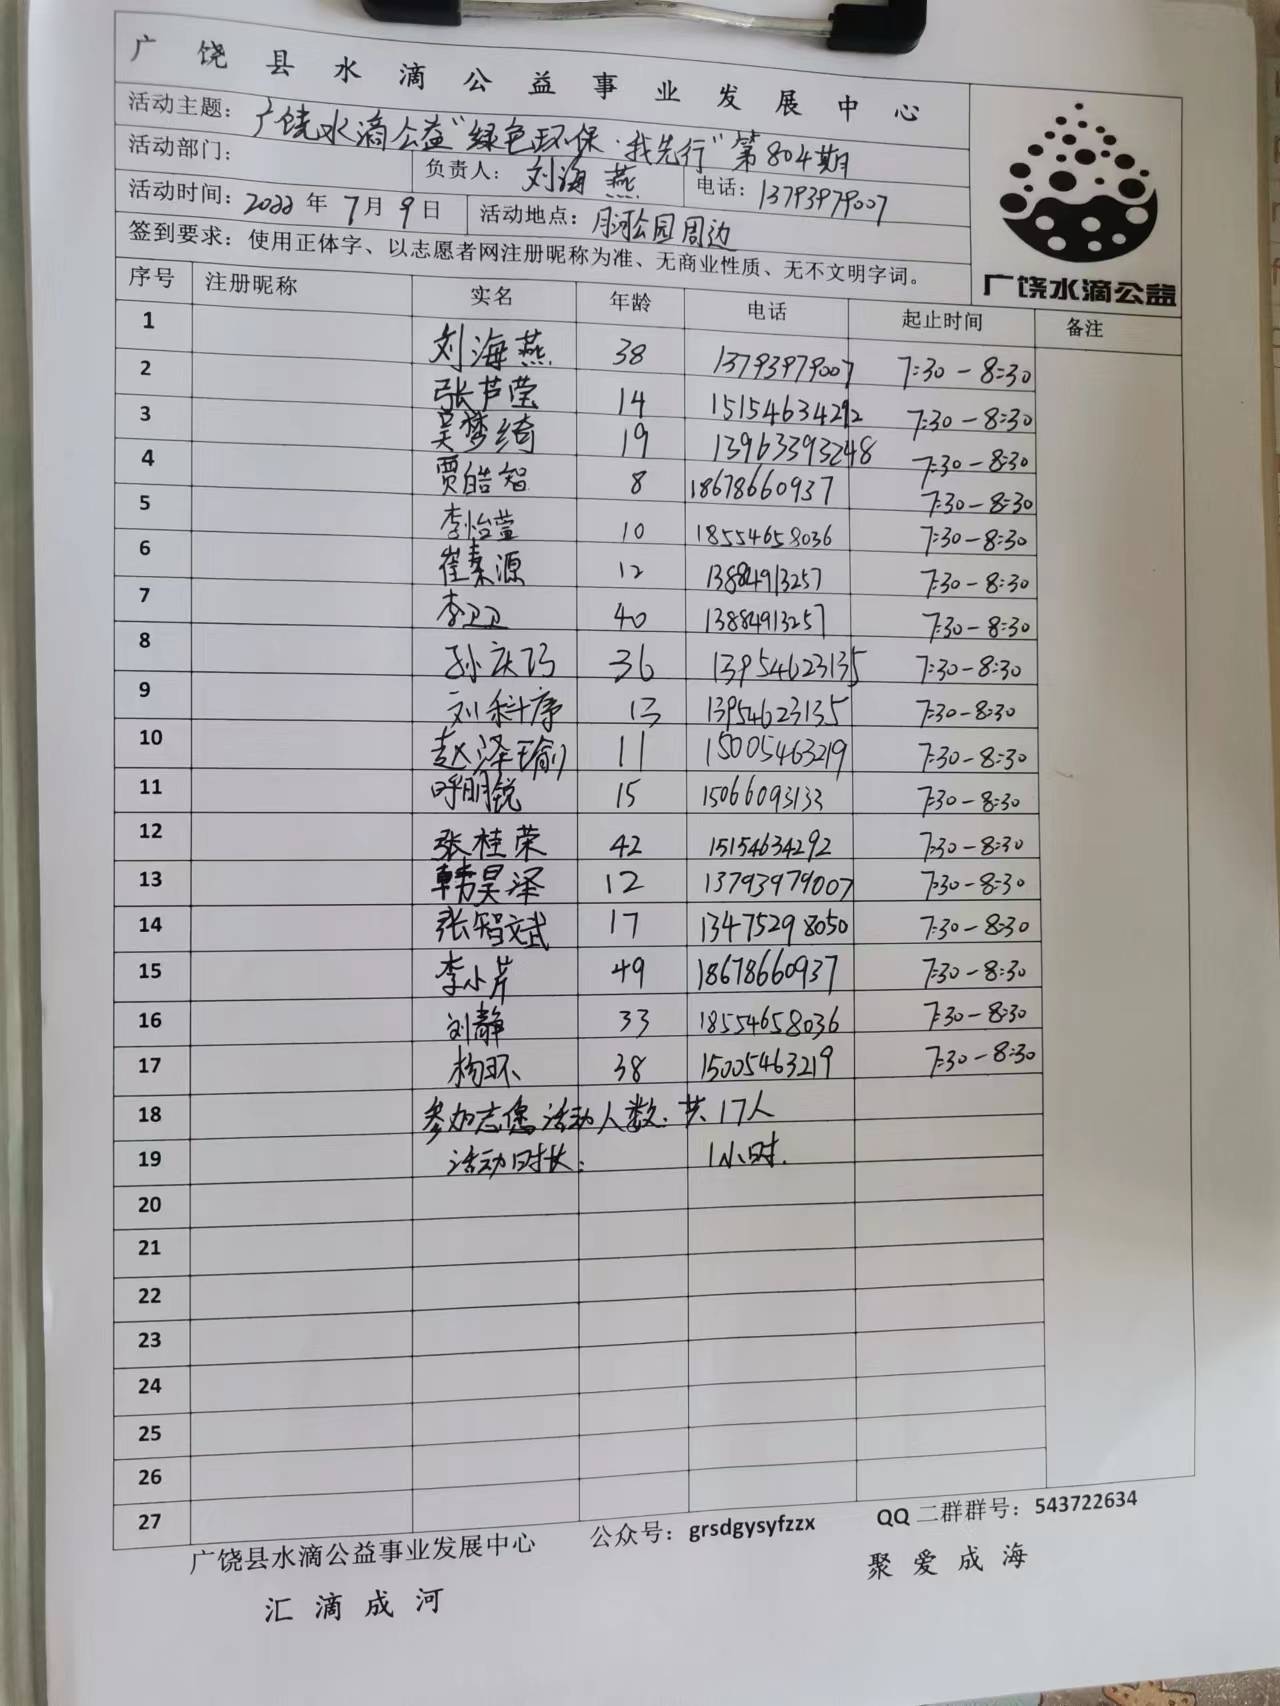 广饶县水滴公益事业发展中心
活动主题：广饶水滴公益"绿色环保·我先行"第804期
活动部门： 负责人：刘海燕 电话：13793979007
活动时间：2022年7月9日 活动地点：月河公园周边
签到要求：使用正体字、以志愿者网注册昵称为准、无商业性质、无不文明字词。
广饶水滴公益
序号 注册昵称 实名 年龄 电话 起止时间 备注
1 刘海燕 38 13793979007 7:30-8:30
2 张芦莹 14 15154634292 7:30-8:30
3 吴梦绮 19 13963393248 7:30-8:30
4 贾皓智 8 18678660937 7:30-8:30
5 李怡萱 10 18554658036 7:30-8:30
6 崔秦源 12 13884913257 7:30-8:30
7 李卫卫 40 13884913257 7:30-8:30
8 孙庆巧 36 13954623135 7:30-8:30
9 刘科序 13 13954623135 7:30-8:30
10 赵泽瑜 11 15005463219 7:30-8:30
11 呼明锐 15 15066093133 7:30-8:30
12 张桂荣 42 15154634292 7:30-8:30
13 韩昊泽 12 13793979007 7:30-8:30
14 张智斌 17 13475298050 7:30-8:30
15 李小芹 49 18678660937 7:30-8:30
16 刘静 33 18554658036 7:30-8:30
17 杨环 38 15005463219 7:30-8:30
18 参加志愿活动人数：共17人
19 活动时长： 1小时.
20
21
22
23
24
25
26
27
广饶县水滴公益事业发展中心 公众号：grsdgysyfzzx QQ二群群号：543722634
汇滴成河 聚爱成海